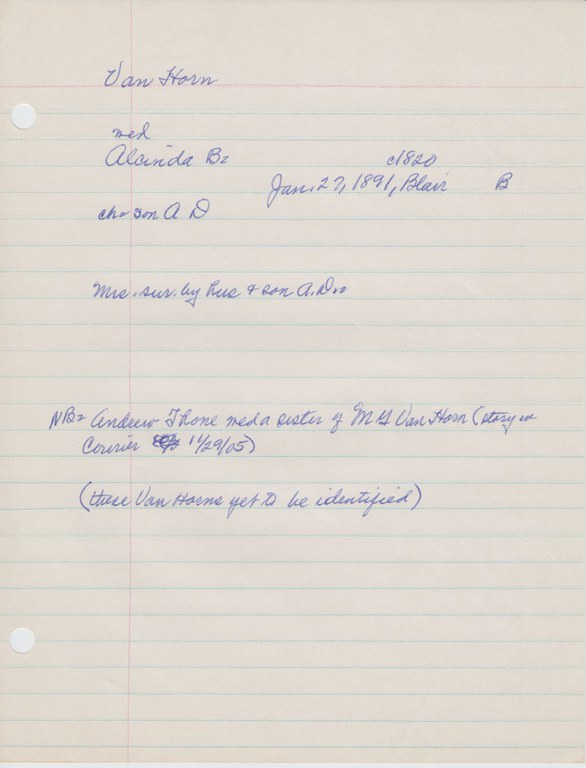 Van Horn
med
Alcinda B=
c1820
Jan. 27, 1891, Blair B
ch= son A D
Mrs. sur. by hus & son A. D.=
NB= Andrew Thone med a sister of M G Van Horn (story in
Courier 11/29/05)
(these Van Horns yet to be identified)